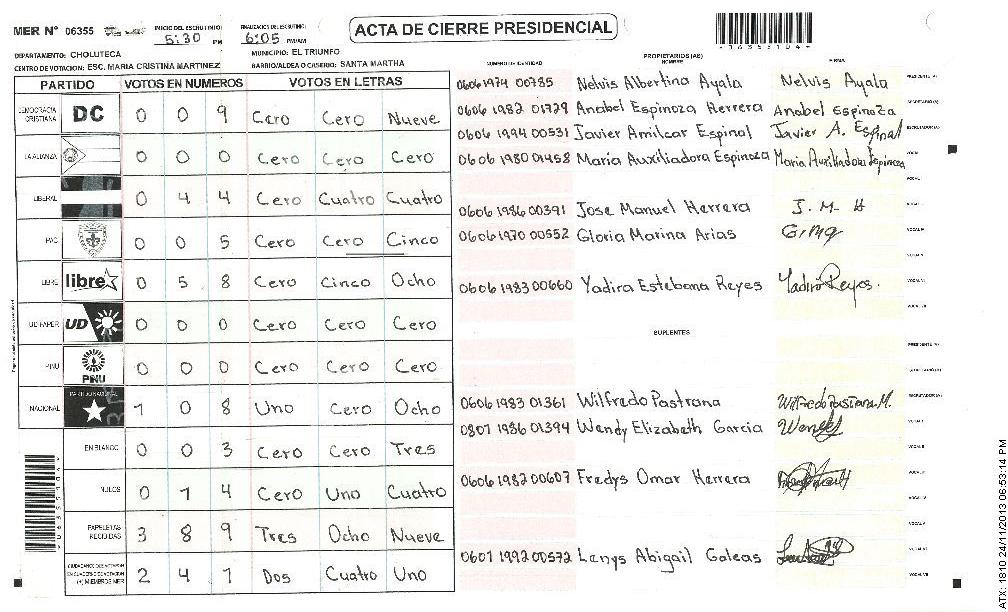 MER Nº 06355
INICIO DEL ESCRUTINIO
5:30 PM
FINALIZACION DEL ESCRUTINIO
6:05 PM/AM
ACTA DE CIERRE PRESIDENCIAL
DEPARTAMENTO: CHOLUTECA
MUNICIPIO: EL TRIUNFO
CENTRO DE VOTACION: ESC. MARIA CRISTINA MARTINEZ
BARRIO/ALDEA O CASERIO: SANTA MARTHA
PARTIDO VOTOS EN NUMEROS VOTOS EN LETRAS
DEMOCRACIA CRISTIANA DC 0 0 9 Cero Cero Nueve
LA ALIANZA 0 0 0 Cero Cero Cero
LIBERAL 0 4 4 Cero Cuatro Cuatro
PAC 0 0 5 Cero Cero Cinco
LIBRE libre 0 5 8 Cero Cinco Ocho
UD FAPER UD 0 0 0 Cero Cero Cero
PINU PINU 0 0 0 Cero Cero Cero
NACIONAL PARTIDO NACIONAL 1 0 8 Uno Cero Ocho
EN BLANCO 0 0 3 Cero Cero Tres
NULOS 0 1 4 Cero Uno Cuatro
PAPELETAS RECIBIDAS 3 8 9 Tres Ocho Nueve
CIUDADANOS QUE VOTARON EN CUADERNO DE VOTACION (+) MIEMBROS MER 2 4 1 Dos Cuatro Uno
NUMERO DE IDENTIDAD PROPIETARIOS (AS) NOMBRE FIRMA
0606 1974 00785 Nelvis Albertina Ayala Nelvis Ayala PRESIDENTE (A)
0606 1982 01729 Anabel Espinoza Herrera Anabel Espinoza SECRETARIO (A)
0606 1994 00531 Javier Amilcar Espinal Javier A. Espinal ESCRUTADOR (A)
0606 1980 01458 Maria Auxiliadora Espinoza Maria Auxiliadora Espinoza
0606 1986 00391 Jose Manuel Herrera J. M. H
0606 1970 00552 Gloria Marina Arias
0606 1983 00660 Yadira Estebana Reyes Yadira Reyes.
SUPLENTES
PRESIDENTE (A)
SECRETARIO (A)
0606 1983 01361 Wilfredo Pastrana Wilfredo Pastrana M. ESCRUTADOR (A)
0801 1986 01394 Wendy Elizabeth Garcia
0606 1982 00607 Fredys Omar Herrera
0601 1992 00572 Lenys Abigail Galeas
ATX: 1810 24/11/2013 06:53:14 PM